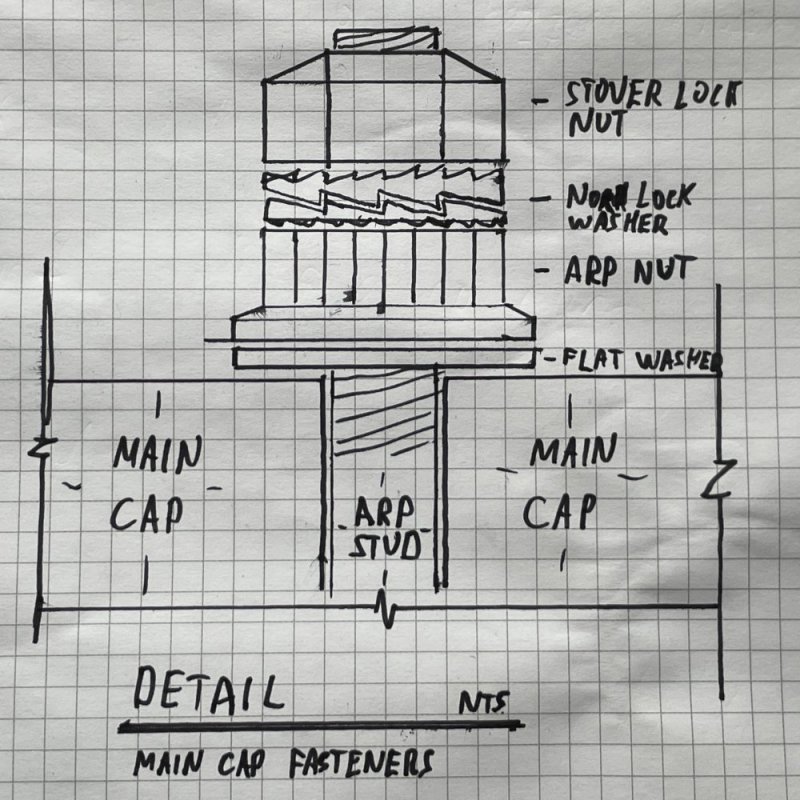 - STOVER LOCK
NUT
- NORD LOCK
WASHER
- ARP NUT
- FLAT WASHER
MAIN
CAP
ARP
STUD
MAIN
CAP
DETAIL NTS
MAIN CAP FASTENERS